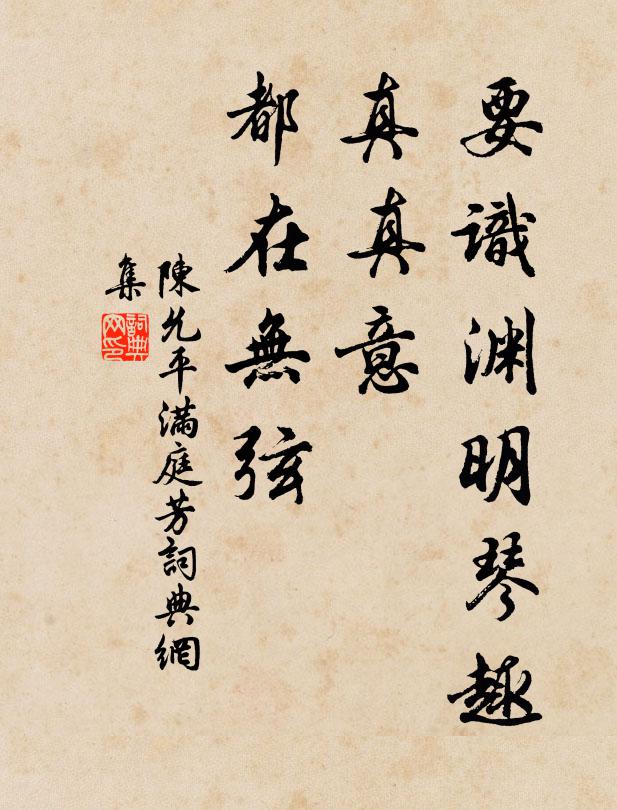 要識渊明琴趣
真真意
都在無弦
陳允平滿庭芳詞典網
集
詞典
网印